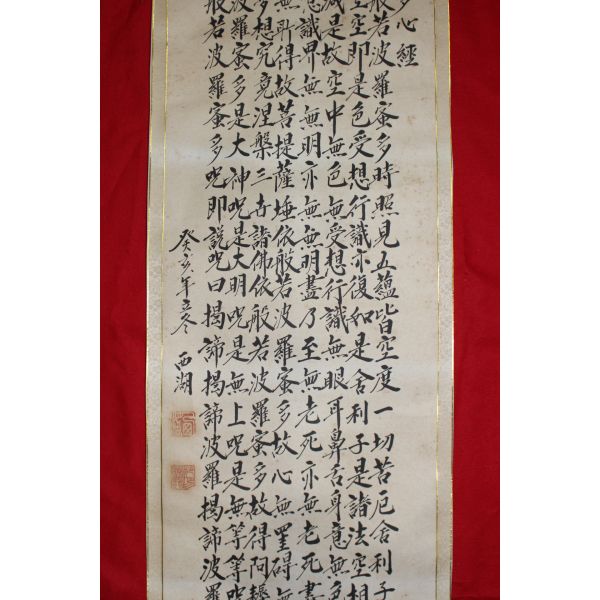 多心經
般若波羅蜜多時照見五蘊皆空度一切苦厄舍利子
空空即是色受想行識亦復如是舍利子是諸法空相
減是故空中無色無受想行識無眼耳鼻舌身意無色
意識界無無明亦無無明盡乃至無老死亦無老死盡
無所得故菩提薩埵依般若波羅蜜多故心無罣礙無
夢想究竟涅槃三世諸佛依般若波羅蜜多故得阿耨
波羅蜜多是大神咒是大明咒是無上咒是無等等咒
般若波羅蜜多咒即說咒曰揭諦揭諦波羅揭諦波羅
癸亥年立冬 西湖